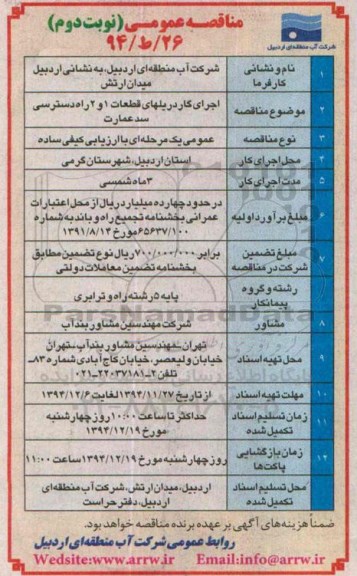 مناقصه عمومی (نوبت دوم)
۹۴/ط/۲۶
شرکت آب منطقه‌ای اردبیل
۱ نام و نشانی کارفرما
شرکت آب منطقه‌ای اردبیل، به نشانی اردبیل
میدان ارتش
۲ موضوع مناقصه
اجرای گاردریلهای قطعات ۱ و ۲ راه دسترسی
سد عمارت
۳ نوع مناقصه
عمومی یک مرحله‌ای با ارزیابی کیفی ساده
۴ محل اجرای کار
استان اردبیل، شهرستان گرمی
۵ مدت اجرای کار
۳ ماه شمسی
۶ مبلغ برآورد اولیه
در حدود چهارده میلیارد ریال از محل اعتبارات
عمرانی بخشنامه تجمیع راه و باند به شماره
۱۰۰/۶۵۶۳۷ مورخ ۱۳۹۱/۸/۱۴
۷ مبلغ تضمین
شرکت در مناقصه
برابر ۷۰۰/۰۰۰/۰۰۰ ریال نوع تضمین مطابق
بخشنامه تضمین معاملات دولتی
رشته و گروه
پیمانکار
پایه ۵ رشته راه و ترابری
۸ مشاور
شرکت مهندسین مشاور بندآب
۹ محل تهیه اسناد
تهران_مهندسین مشاور بندآب_تهران
خیابان ولیعصر، خیابان کاج آبادی شماره ۸۳_
تلفن ۲_۲۲۰۳۷۱۸۱_۰۲۱
۱۰ مهلت تهیه اسناد
از تاریخ ۱۳۹۴/۱۱/۲۷ لغایت ۱۳۹۴/۱۲/۶
۱۱ زمان تسلیم اسناد
تکمیل شده
حداکثر تا ساعت ۱۰:۰۰ روز چهارشنبه
مورخ ۱۳۹۴/۱۲/۱۹
۱۲ زمان بازگشایی
پاکت‌ها
روز چهارشنبه مورخ ۱۳۹۴/۱۲/۱۹ ساعت ۱۱:۰۰
محل تسلیم اسناد
تکمیل شده
اردبیل، میدان ارتش، شرکت آب منطقه‌ای
اردبیل، دفتر حراست
ضمناً هزینه‌های آگهی بر عهده برنده مناقصه خواهد بود.
روابط عمومی شرکت آب منطقه‌ای اردبیل
Wedsite:www.arrw.ir Email:info@arrw.ir
ParsNamadData